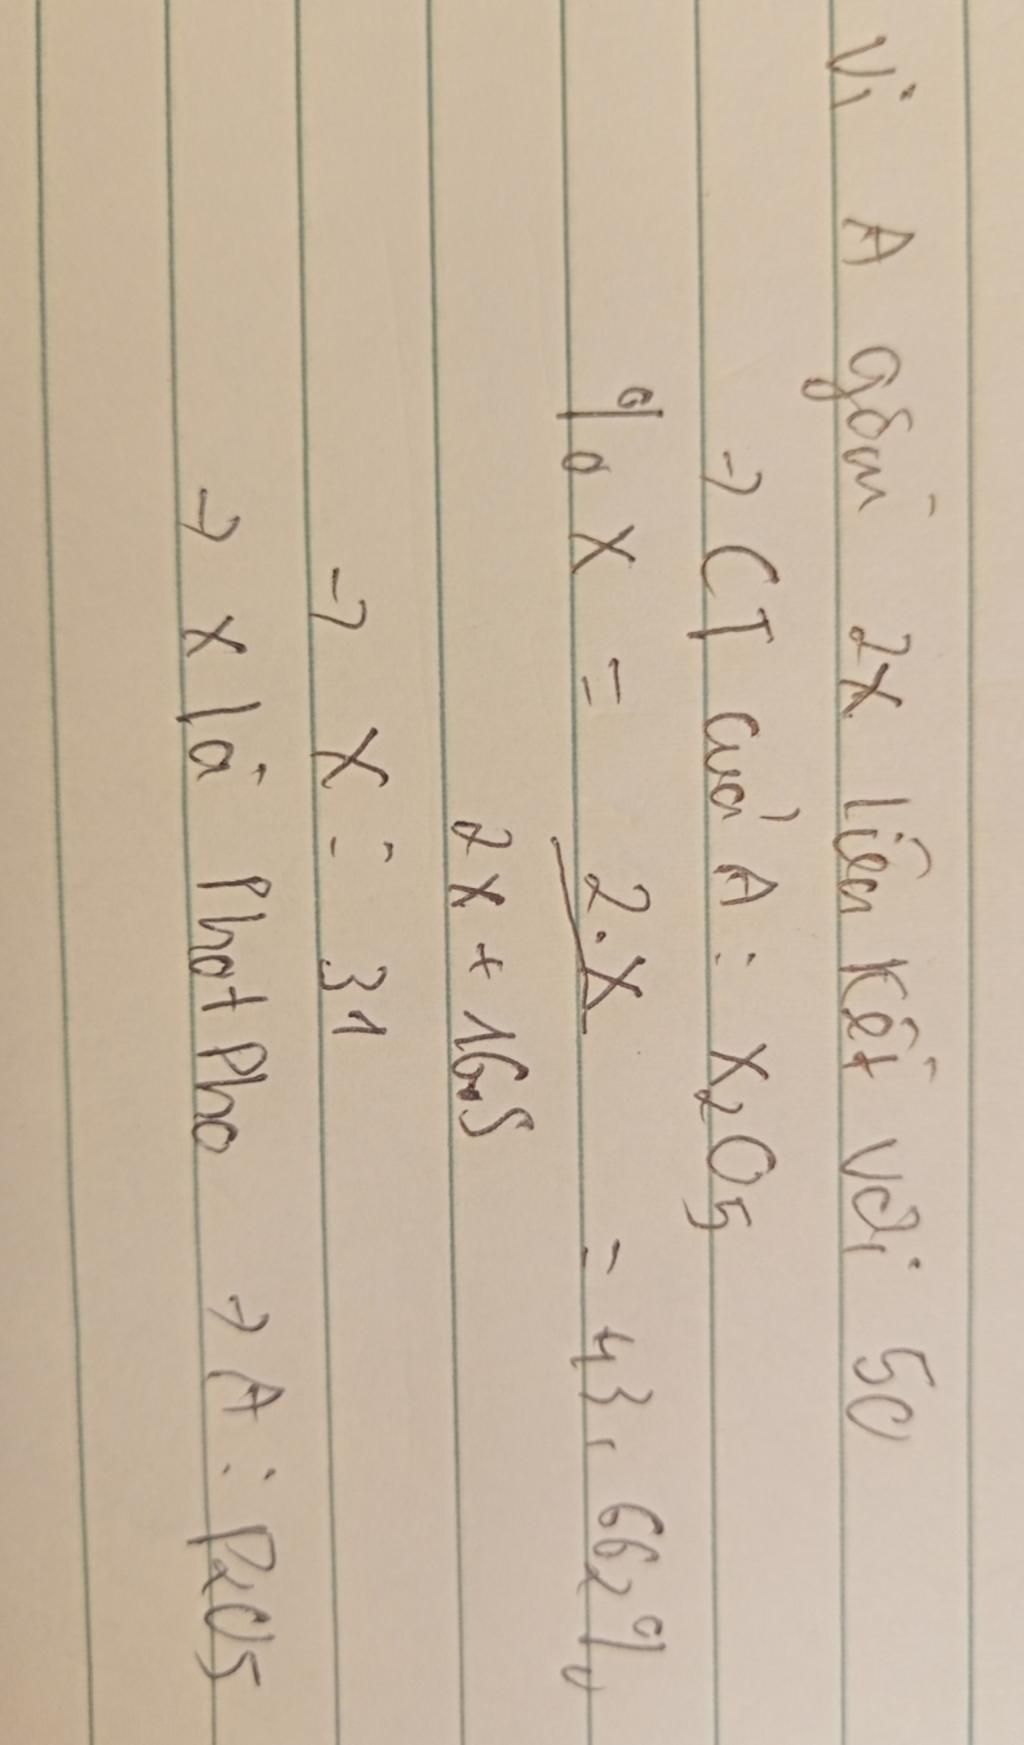 Vì A gồm 2X liên kết với 5O
→ CT của A : X2O5
% X = 2.X = 43,662%
2X + 16.5
→ X = 31
→ X là PhotPho → A : P2O5